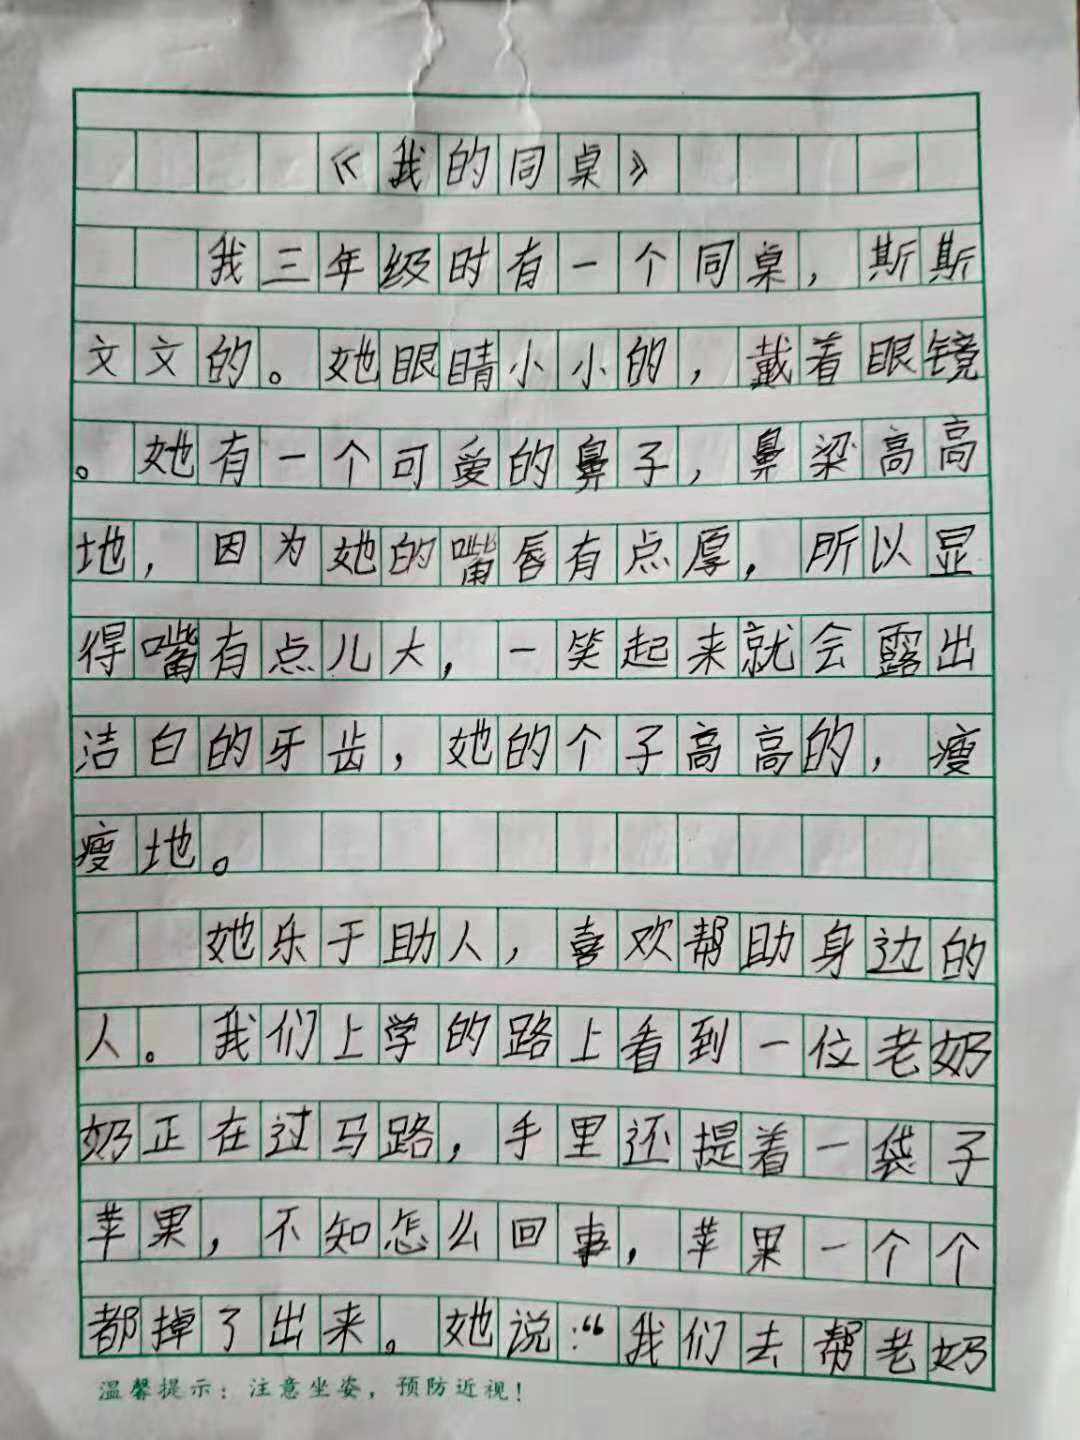 《我的同桌》
我三年级时有一个同桌，斯斯
文文的。她眼睛小小的，戴着眼镜
。她有一个可爱的鼻子，鼻梁高高
地，因为她的嘴唇有点厚，所以显
得嘴有点儿大，一笑起来就会露出
洁白的牙齿，她的个子高高的，瘦
瘦地。
她乐于助人，喜欢帮助身边的
人。我们上学的路上看到一位老奶
奶正在过马路，手里还提着一袋子
苹果，不知怎么回事，苹果一个个
都掉了出来。她说：“我们去帮老奶
温馨提示：注意坐姿，预防近视！